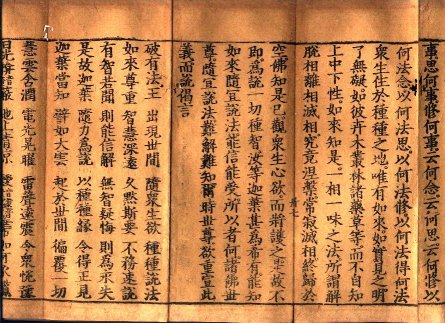 事思何事修何事云何念云何思云何修以
何法念以何法思以何法修以何法得何法
衆生住於種種之地唯有如來如實見之明
了無礙如彼卉木叢林諸藥草等而不自知
上中下性如來知是一相一味之法所謂解
脫相離相滅相究竟涅槃常寂滅相終歸於
空佛知是已觀衆生心欲而將護之是故不
即爲說一切種智汝等迦葉甚爲希有能知
如來隨宜說法能信能受所以者何諸佛世
尊隨宜說法難解難知爾時世尊欲重宣此
義而說偈言
破有法王 出現世間 隨衆生欲 種種說法
如來尊重 智慧深遠 久默斯要 不務速說
有智若聞 則能信解 無智疑悔 則爲永失
是故迦葉 隨力爲說 以種種緣 令得正見
迦葉當知 譬如大雲 起於世間 徧覆一切
慧雲含潤 電光晃曜 雷聲遠震 令衆悅豫
日光掩蔽 地上清涼 如可承攬